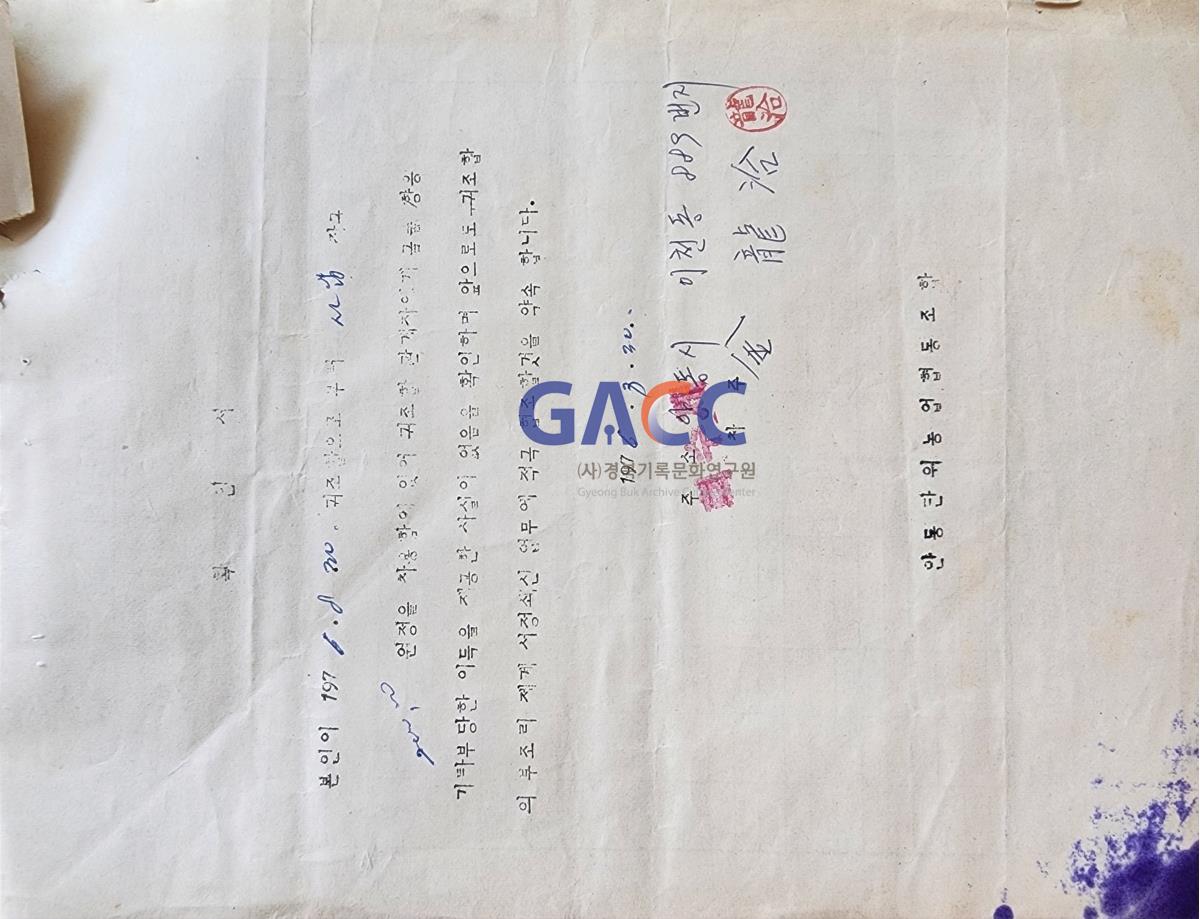 확 인 서
본인이 1976. 8 30. 귀조합으로 부터
원정을 차용함에 있어 귀조합 관계자에게 금품 향응
기타부당한 이득을 제공한 사실이 없음을 확인하며 앞으로도 귀조합
의 부조리 제거 서정쇄신 업무에 적극 협조 할것을 약속 합니다.
1976. 8. 30.
주 소 안동시 이천동 889 번지
차 주 金 龍 洽
龍洽
안동단위농업협동조합
GACC
(사)경북기록문화연구원
Gyeong Buk Archive Center